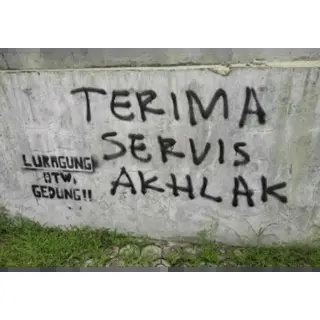 TERIMA
SERVIS
AKHLAK
LURAGUNG
OTW.
GEDUNG!!